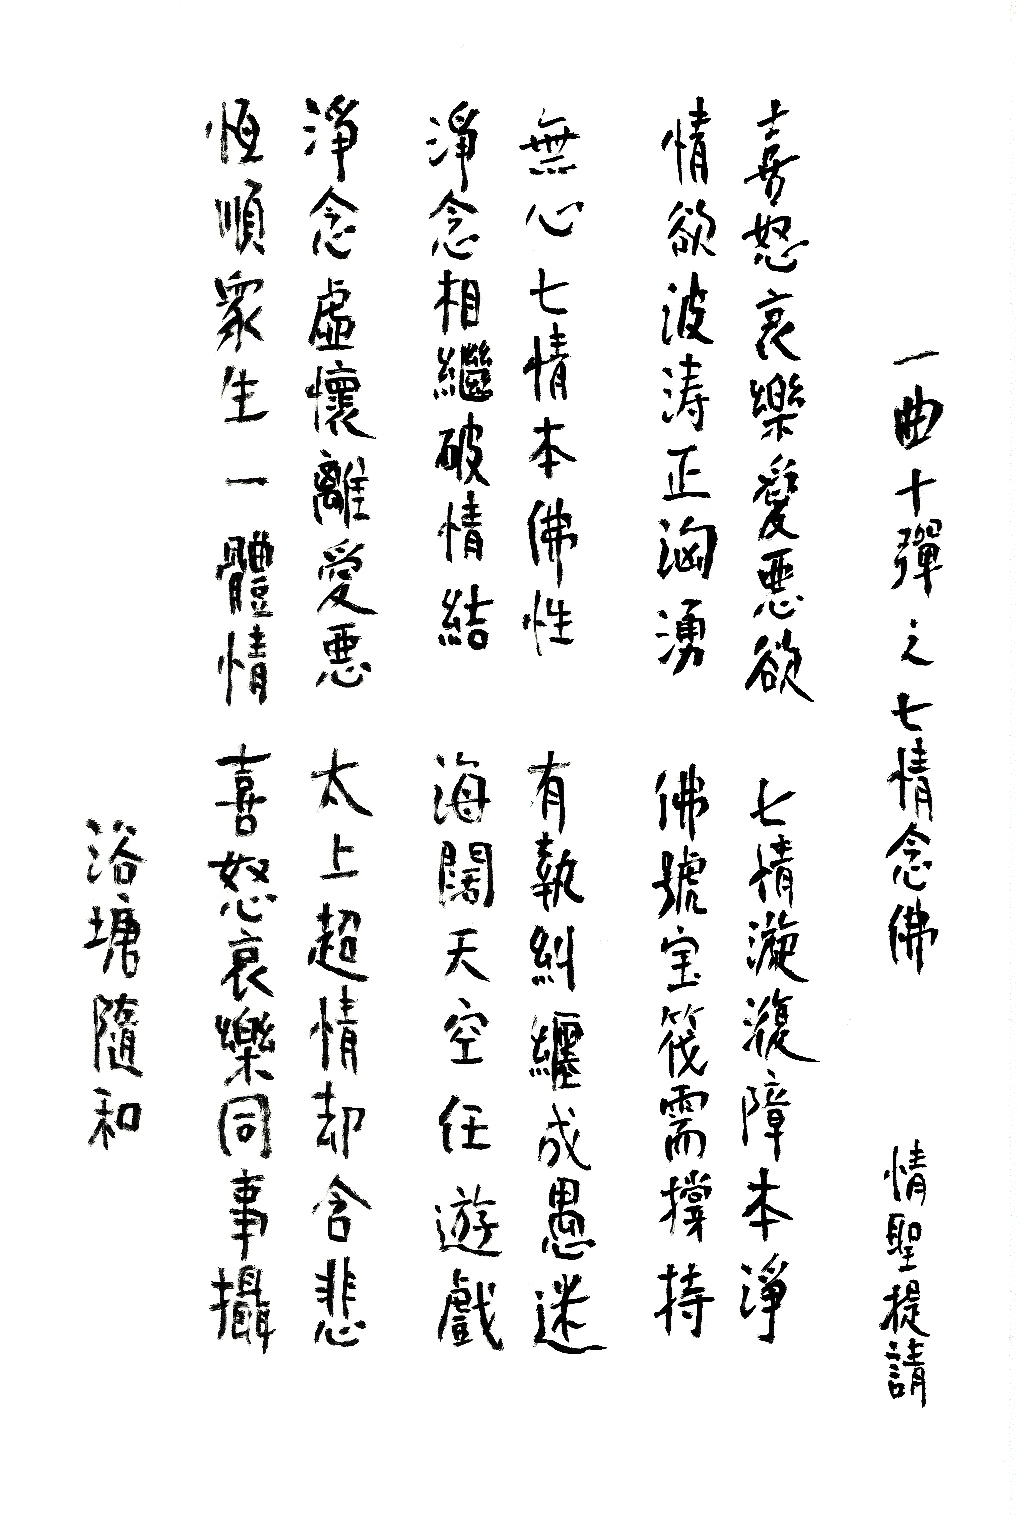 一曲十彈之七情念佛 情聖提請
喜怒哀樂愛惡欲 七情漩澓障本淨
情欲波涛正洶湧 佛號宝筏需撐持
無心七情本佛性 有執糾纏成愚迷
淨念相繼破情結 海闊天空任遊戲
淨念虛懷離愛惡 太上超情却含悲
恆順眾生一體情 喜怒哀樂同事攝
浴塘隨和